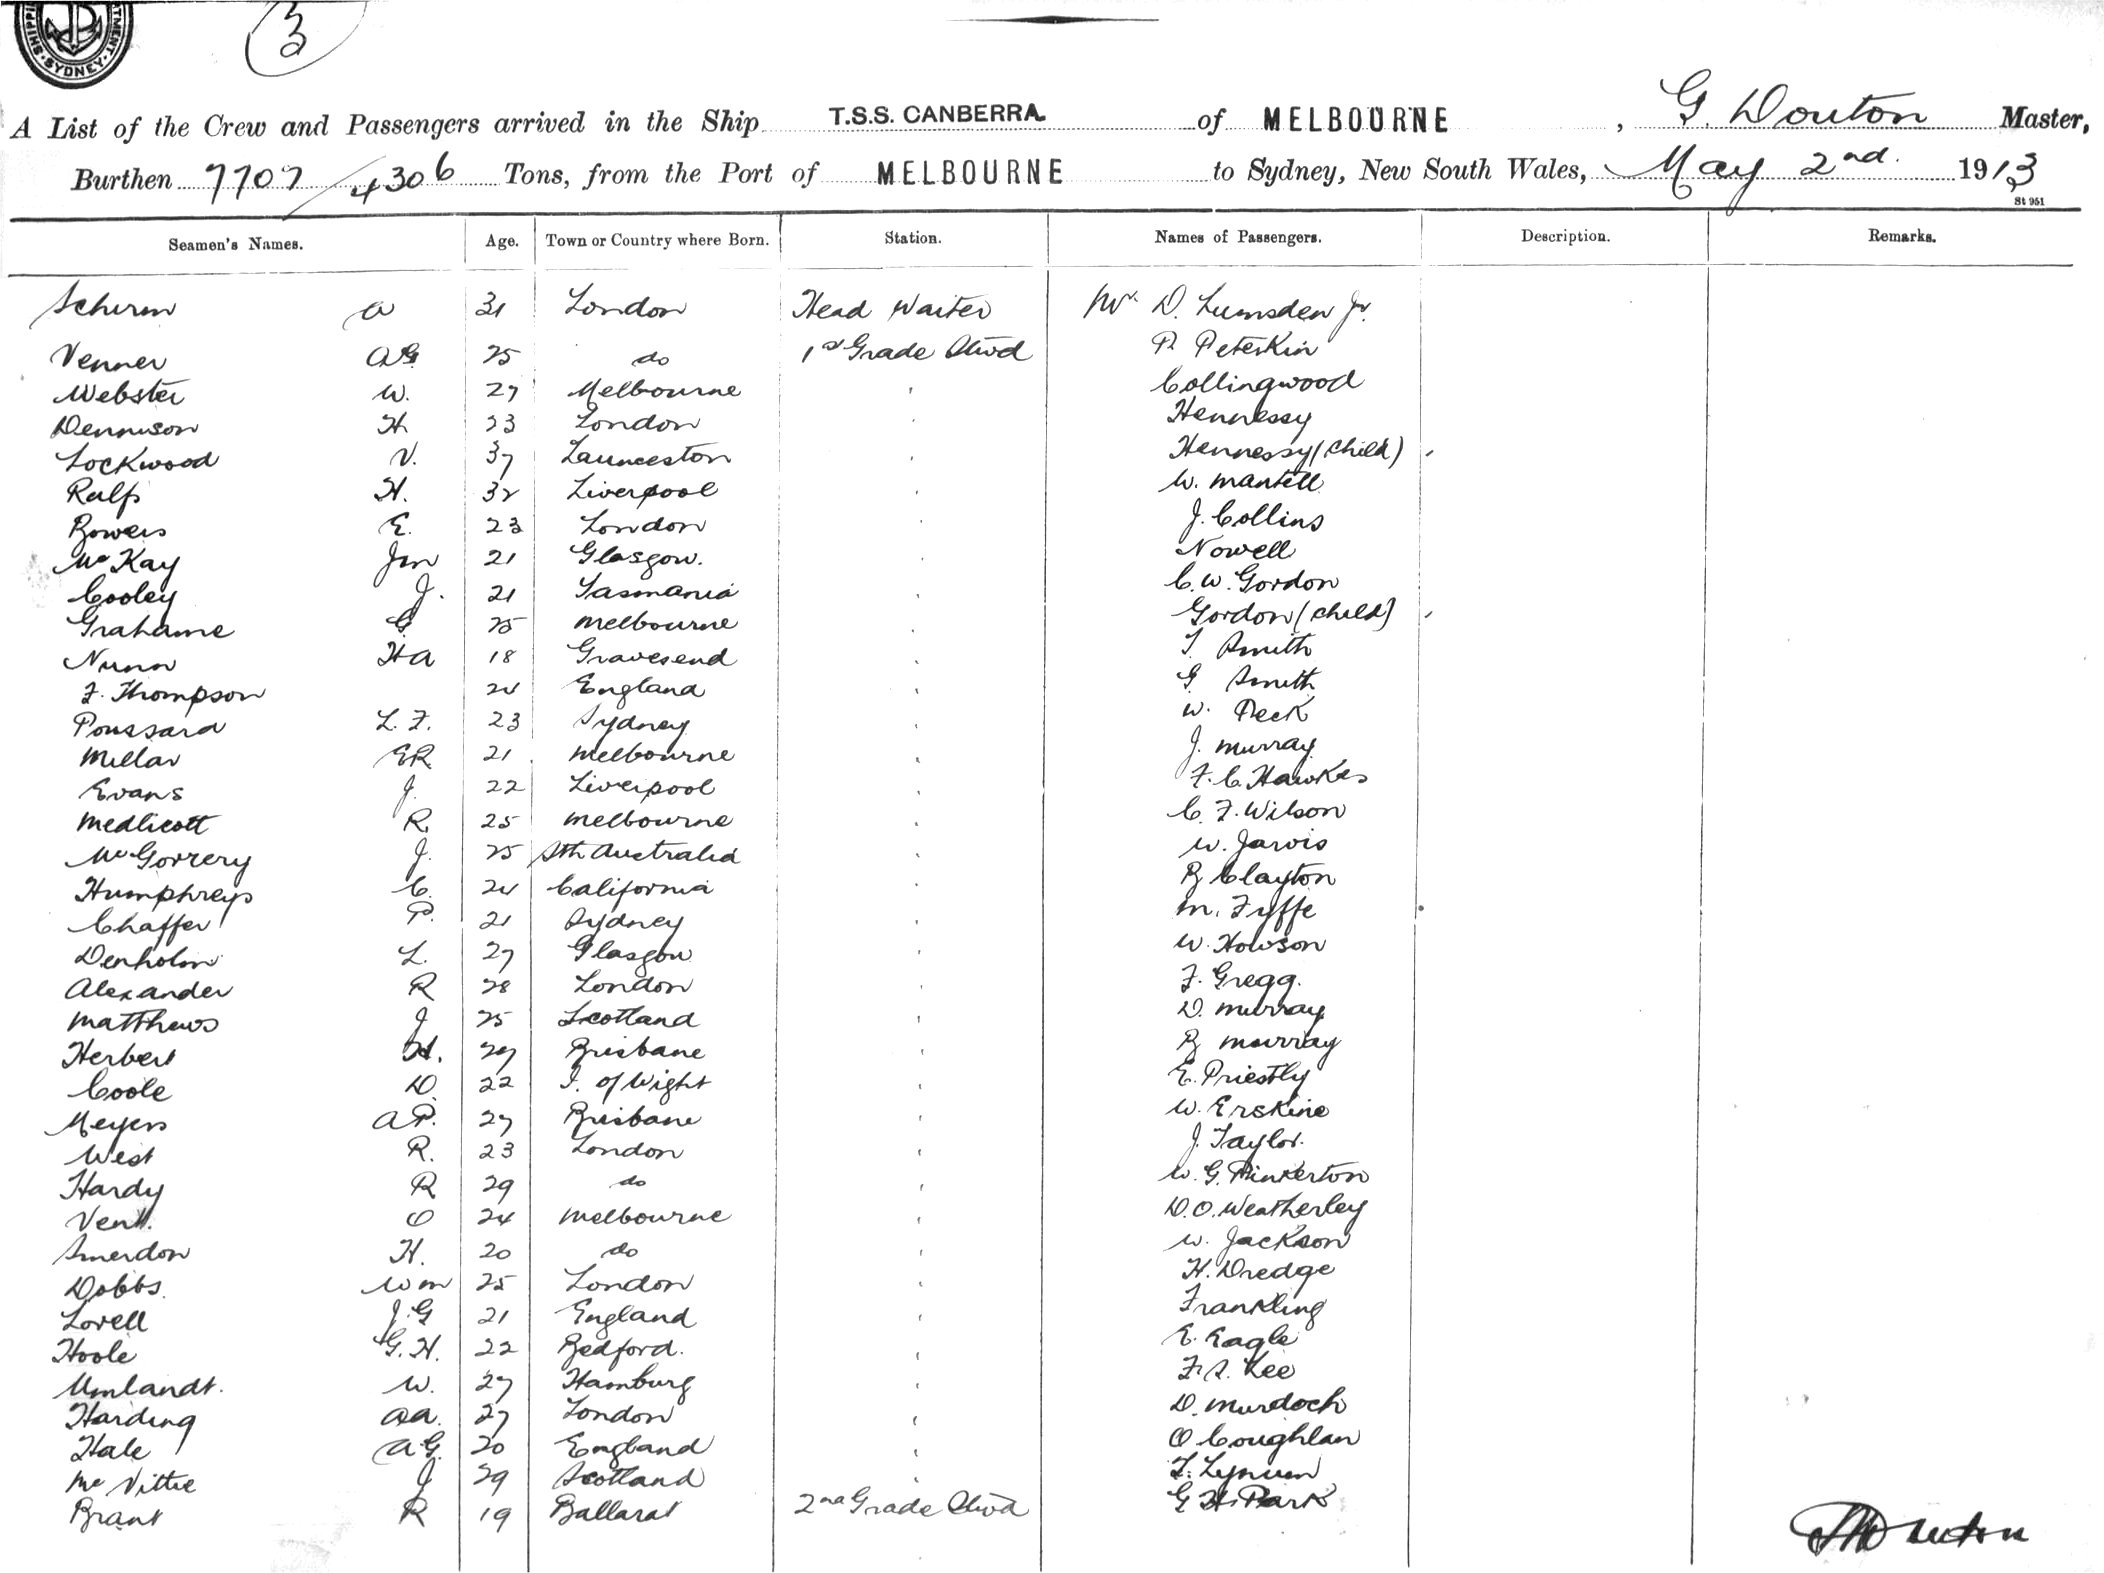 SHIPPING DEPARTMENT · SYDNEY ·
3
A List of the Crew and Passengers arrived in the Ship T.S.S. CANBERRA. of MELBOURNE, G. Douton Master,
Burthen 7707/4306 Tons, from the Port of MELBOURNE to Sydney, New South Wales, May 2nd. 1913
St 951
Seamen's Names. Age. Town or Country where Born. Station. Names of Passengers. Description. Remarks.
Schirm A 31 London Head Waiter Mr D. Lumsden Jr.
Venner AG 25 do 1st Grade Stwd P Peterkin
Webster W. 27 Melbourne ' Collingwood
Dennison H 23 London ' Hennessy
Lockwood V. 37 Launceston ' Hennessy (Child)
Ralfs H. 32 Liverpool ' W. Mantell
Bowers E. 23 London ' J. Collins
McKay Jno 21 Glasgow. ' Nowell
Cooley J. 21 Tasmania ' C. W. Gordon
Grahame G 25 Melbourne ' Gordon (Child)
Nunn HA 18 Gravesend ' T. Smith
F. Thompson 24 England ' G Smith
Poussard L. F. 23 Sydney ' W. Peck
Millar ER 21 Melbourne ' J. Murray
Evans J. 22 Liverpool ' F. C. Hawkes
Medlicott R. 25 Melbourne ' C. F. Wilson
McGorrery J. 25 Sth Australia ' W. Jarvis
Humphreys C. 24 California ' B Clayton
Chaffer P. 21 Sydney ' M. Fyffe
Denholm L. 27 Glasgow ' W. Howson
Alexander R 28 London ' F. Gregg.
Matthews J 25 Scotland ' D. Murray
Herbert H. 27 Brisbane ' B Murray
Coole D. 22 I. of Wight ' E. Priestly
Meyers A P. 27 Brisbane ' W. Erskine
West R. 23 London ' J. Taylor.
Hardy R 29 do ' W. G. Pinkerton
Vent. O 24 Melbourne ' D. O. Weatherley
Smerdon H. 20 do ' W. Jackson
Dobbs. Wm 25 London ' H. Dredge
Lovell J. G 21 England ' Frankling
Hoole G. H. 22 Bedford. ' E. Eagle
Umlandt. W. 27 Hamburg ' F. S. Kee
Harding AA. 27 London ' D. Murdoch
Hale A G. 20 England ' O Coughlan
McVittie J 29 Scotland '
Brant R 19 Ballarat 2nd Grade Stwd G H. Park